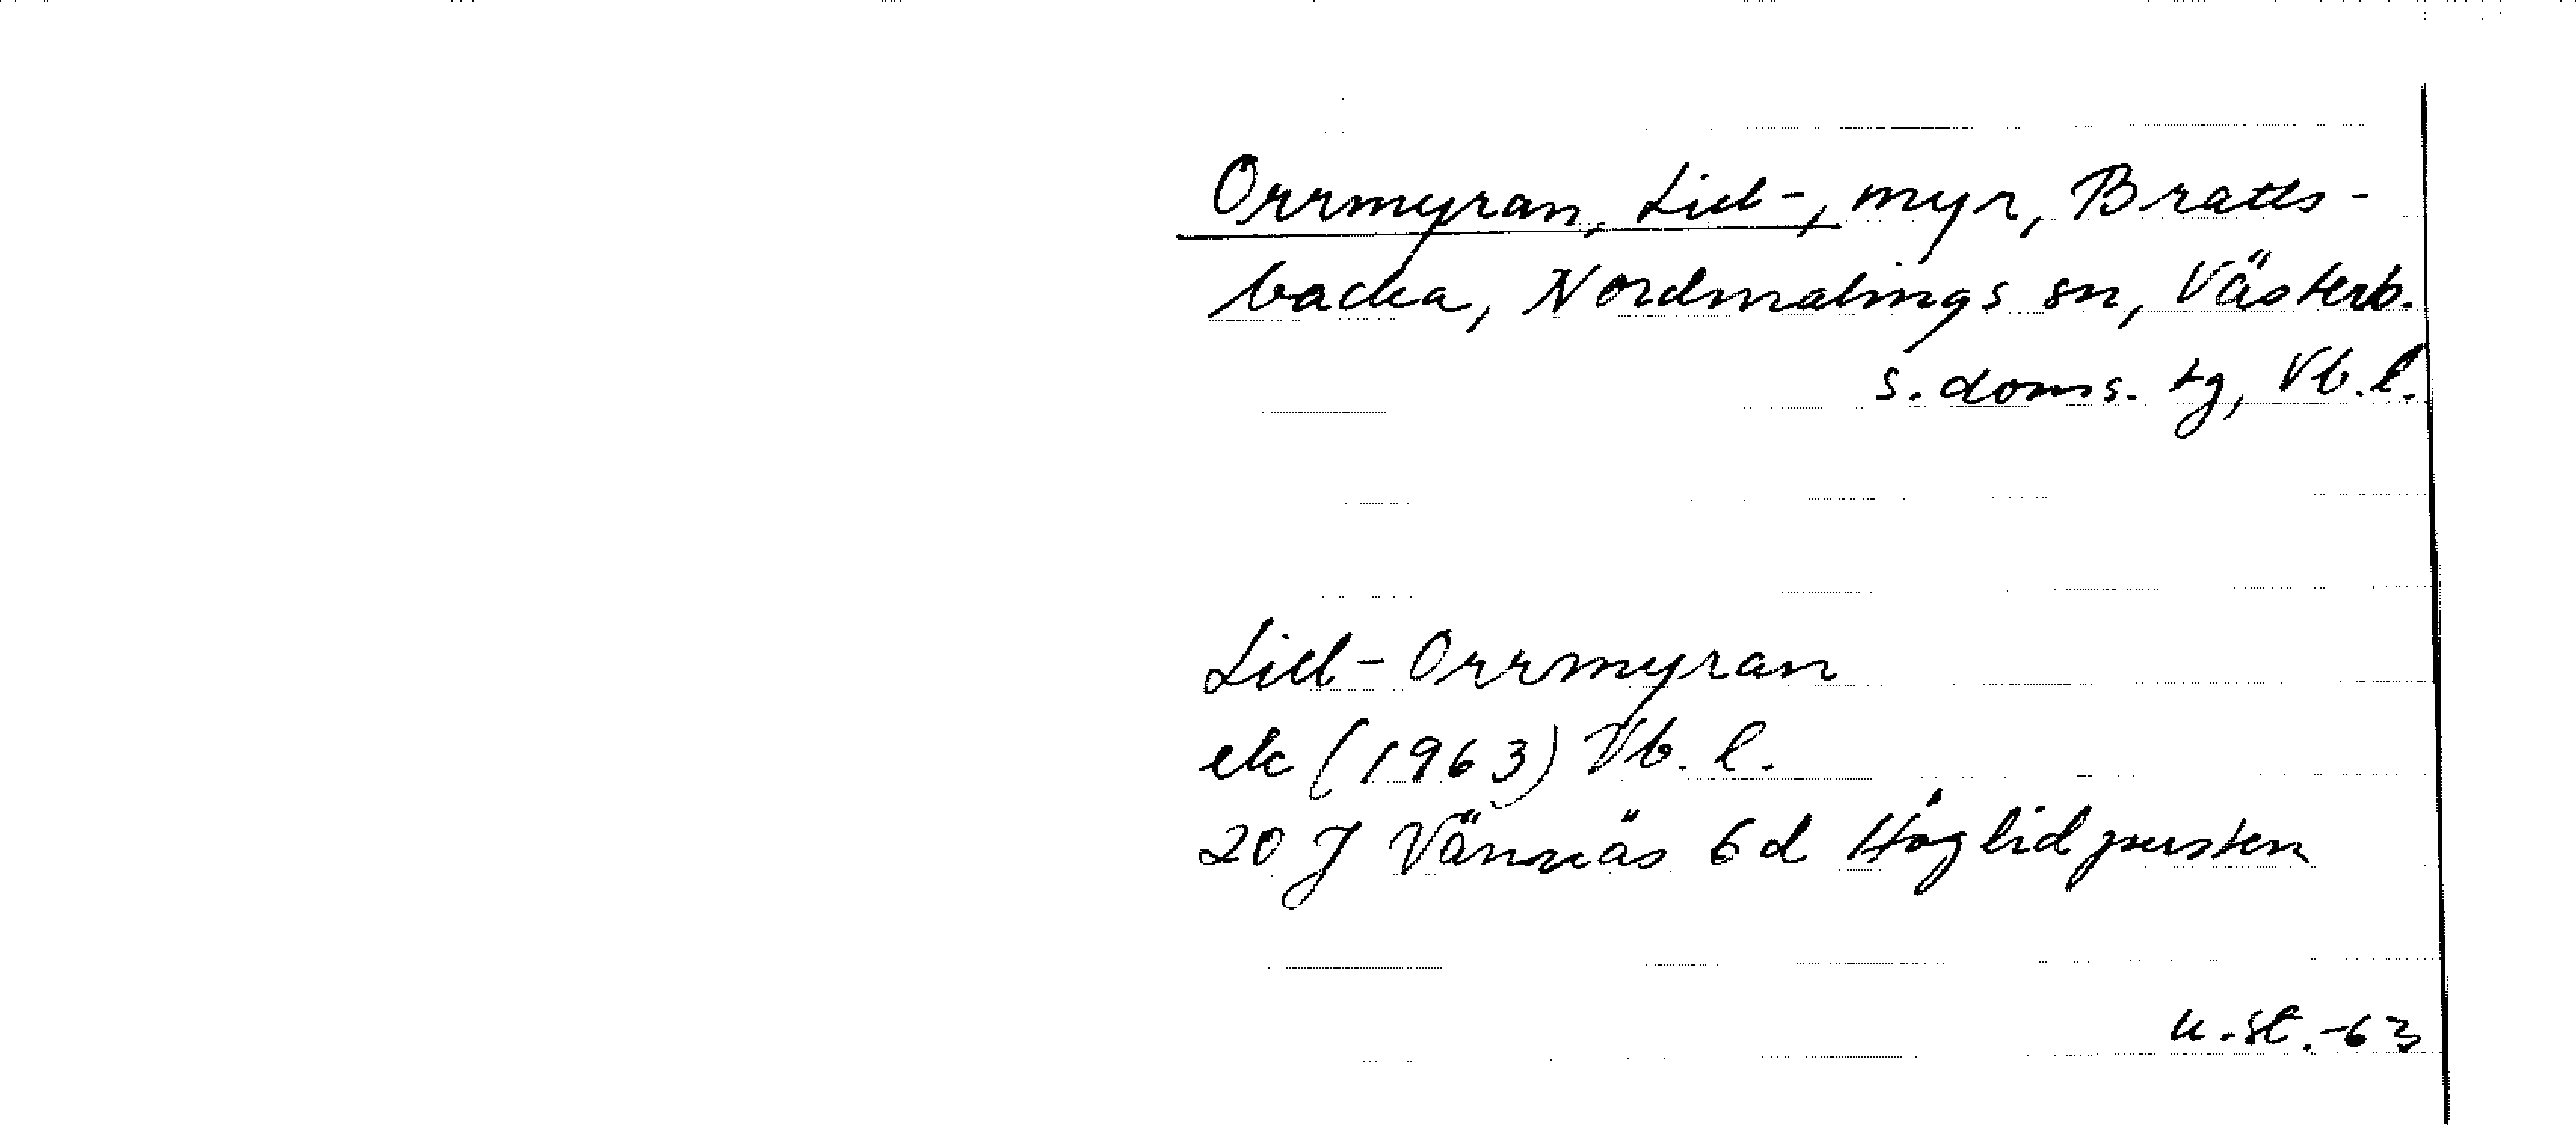 Orrmyran, Lill-, myr, Bratts-
backa, Nordmalings sn, Västerb.
s. doms. tg, Vb. l.
Lill-Orrmyran
ek (1963) Vb. l.
20 J Vännäs 6 d
u. st. -63